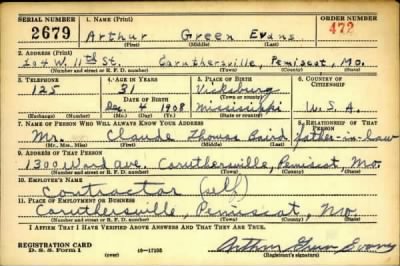 SERIAL NUMBER 1. NAME (Print) ORDER NUMBER
2679 Arthur Green Evans 472
(First) (Middle) (Last)
2. ADDRESS (Print)
204 W. 11th St. Caruthersville, Pemiscot, Mo.
(Number and street or R. F. D. number) (Town) (County) (State)
3. TELEPHONE 4. AGE IN YEARS 5. PLACE OF BIRTH 6. COUNTRY OF CITIZENSHIP
125 31 Vicksburg
DATE OF BIRTH (Town or county)
Dec. 4 1908 Mississippi U.S.A.
(Exchange) (Number) (Mo.) (Day) (Yr.) (State or country)
7. NAME OF PERSON WHO WILL ALWAYS KNOW YOUR ADDRESS 8. RELATIONSHIP OF THAT PERSON
Mr. Claude Thomas Baird father-in-law
(Mr., Mrs., Miss) (First) (Middle) (Last)
9. ADDRESS OF THAT PERSON
1300 Ward Ave. Caruthersville, Pemiscot Mo.
(Number and street or R. F. D. number) (Town) (County) (State)
10. EMPLOYER'S NAME
Contractor (self)
11. PLACE OF EMPLOYMENT OR BUSINESS
Caruthersville, Pemiscot, Mo.
(Number and street or R. F. D. number) (Town) (County) (State)
I AFFIRM THAT I HAVE VERIFIED ABOVE ANSWERS AND THAT THEY ARE TRUE.
Arthur Green Evans
REGISTRATION CARD
D. S. S. Form 1 (over) 16-17105 (Registrant's signature)